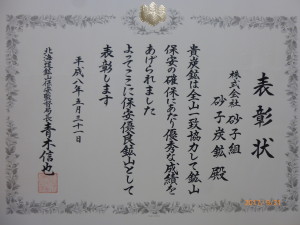 表彰状
株式会社 砂子組
砂子炭鉱 殿
貴炭鉱は全山一致協力して鉱山
保安の確保にあたり優秀な成績を
あげられました
よってここに保安優良鉱山として
表彰します
平成八年五月三十一日
北海道鉱山保安監督局長 青木信也